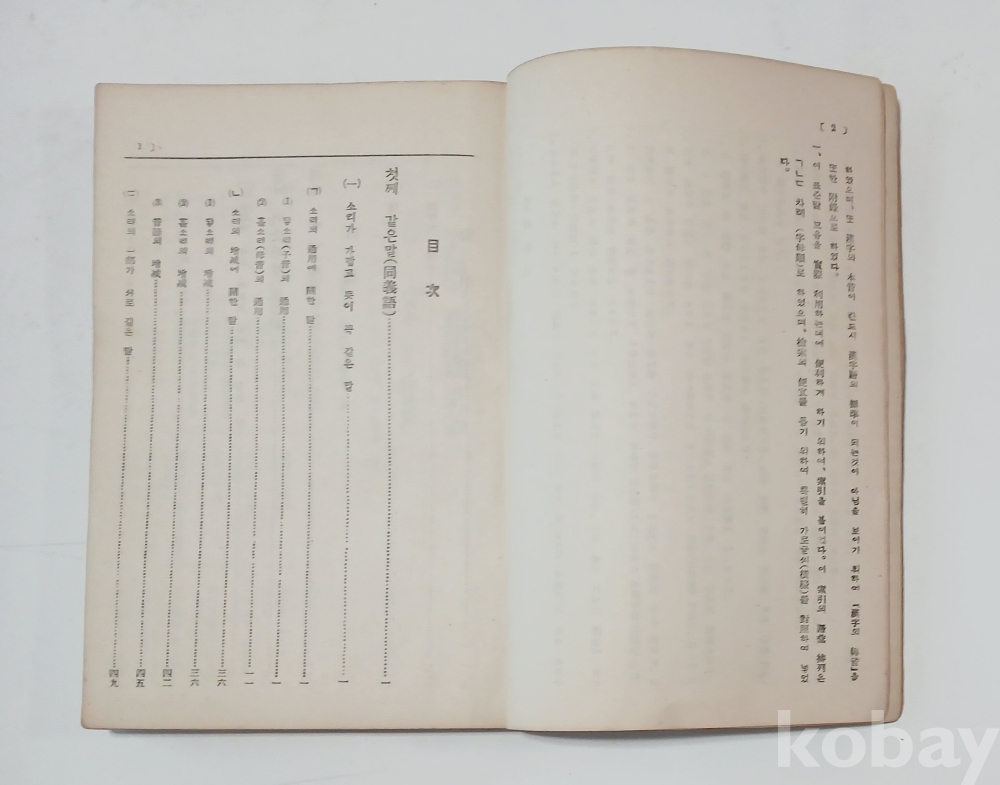 ( 2 )
하였으며, 또 漢字의 本音이 반드시 漢字語의 標準이 되는것이 아님을 보이기 위하여 「漢字의 轉音」을
또한 附錄으로 하였다.
一, 이 표준말 모음을 實際 利用하는데에 便利하게 하기 위하여, 索引을 붙이었다. 이 索引의 語彙 排列은
ㄱㄴㄷ 차례 (字母順)로 하였으며, 檢索의 便宜를 돕기 위하여 특별히 가로글씨(橫綴)를 對照하여 놓았
다.
3 )
目 次
첫째 같은말(同義語)……一
(一) 소리가 가깝고 뜻이 꼭 같은 말……一
(ㄱ) 소리의 通用에 關한 말……一
(1) 닿소리(子音)의 通用……一
(2) 홀소리(母音)의 通用……一一
(ㄴ) 소리의 增減에 關한 말……三六
(1) 닿소리의 增減……三六
(2) 홀소리의 增減……四二
(3) 音節의 增減……四五
(ㄷ) 소리의 一部가 서로 같은 말……四九
kobay